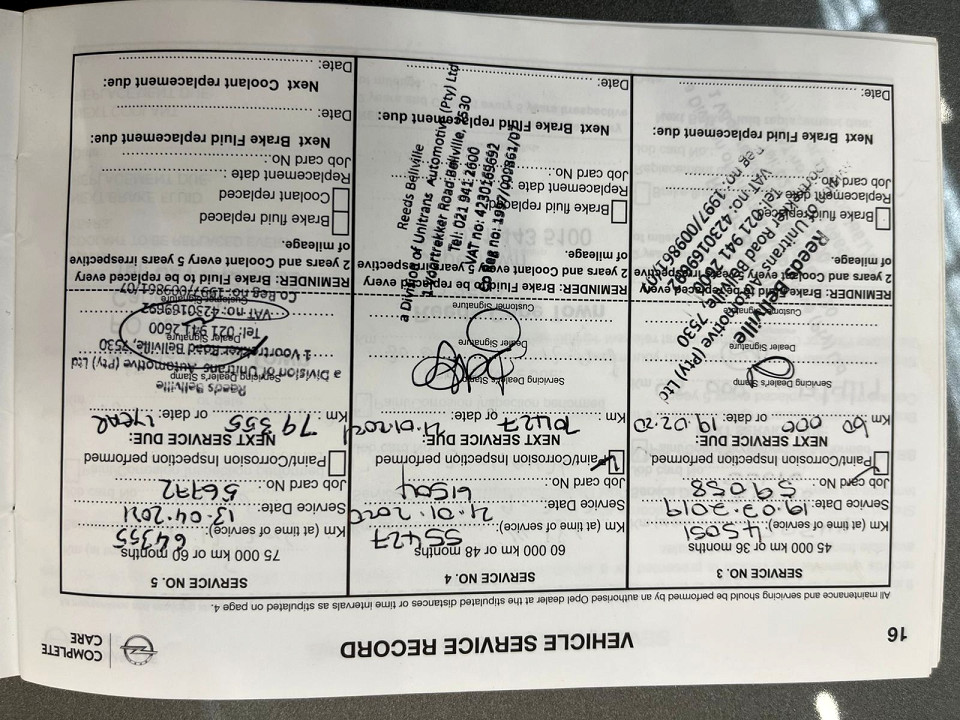 16
VEHICLE SERVICE RECORD
COMPLETE
CARE
All maintenance and servicing should be performed by an authorised Opel dealer at the stipulated distances or time intervals as stipulated on page 4.
SERVICE NO. 3
45 000 km or 36 months
Km (at time of service): 45051
Service Date: 19.02.2019
Job card No.: 59058
Paint/Corrosion Inspection performed
NEXT SERVICE DUE:
Km 60 000 or date: 19.02.20
Servicing Dealer's Stamp
Dealer Signature
Customer Signature
Reeds Bellville
a Division of Unitrans Automotive (Pty) Ltd
Voortrekker Road Bellville, 7530
Tel: 021 941 2600
VAT no: 4230169692
Reg no: 1997/009861/07
REMINDER: Brake Fluid to be replaced every
2 years and Coolant every 5 years irrespective
of mileage.
Brake fluid replaced
Replacement date
Job card No.
Next Brake Fluid replacement due:
Date:
SERVICE NO. 4
60 000 km or 48 months
Km (at time of service): 55427
Service Date: 21.01.2020
Job card No.: 61504
Paint/Corrosion Inspection performed
NEXT SERVICE DUE:
Km: 70427 or date: 21.01.2021
Servicing Dealer's Stamp
Dealer Signature
Customer Signature
REMINDER: Brake Fluid to be replaced every
2 years and Coolant every 5 years irrespective
of mileage.
Brake fluid replaced
Replacement date
Job card No.:
Next Brake Fluid replacement due:
Date:
Reeds Bellville
a Division of Unitrans Automotive (Pty) Ltd
1 Voortrekker Road Bellville, 7530
Tel: 021 941 2600
VAT no: 4230169692
Co Reg no: 1997/009861/07
SERVICE NO. 5
75 000 km or 60 months
Km (at time of service): 64355
Service Date: 13.04.2021
Job card No.: 56772
Paint/Corrosion Inspection performed
NEXT SERVICE DUE:
Km: 79355 or date: 1 year
Servicing Dealer's Stamp
Reeds Bellville
a Division of Unitrans Automotive (Pty) Ltd
1 Voortrekker Road Bellville, 7530
Dealer Signature
Tel: 021 941 2600
VAT no: 4230169692
Customer Signature
Co Reg no: 1997/009861/07
REMINDER: Brake Fluid to be replaced every
2 years and Coolant every 5 years irrespective
of mileage.
Brake fluid replaced
Coolant replaced
Replacement date
Job card No.:
Next Brake Fluid replacement due:
Date:
Next Coolant replacement due:
Date: